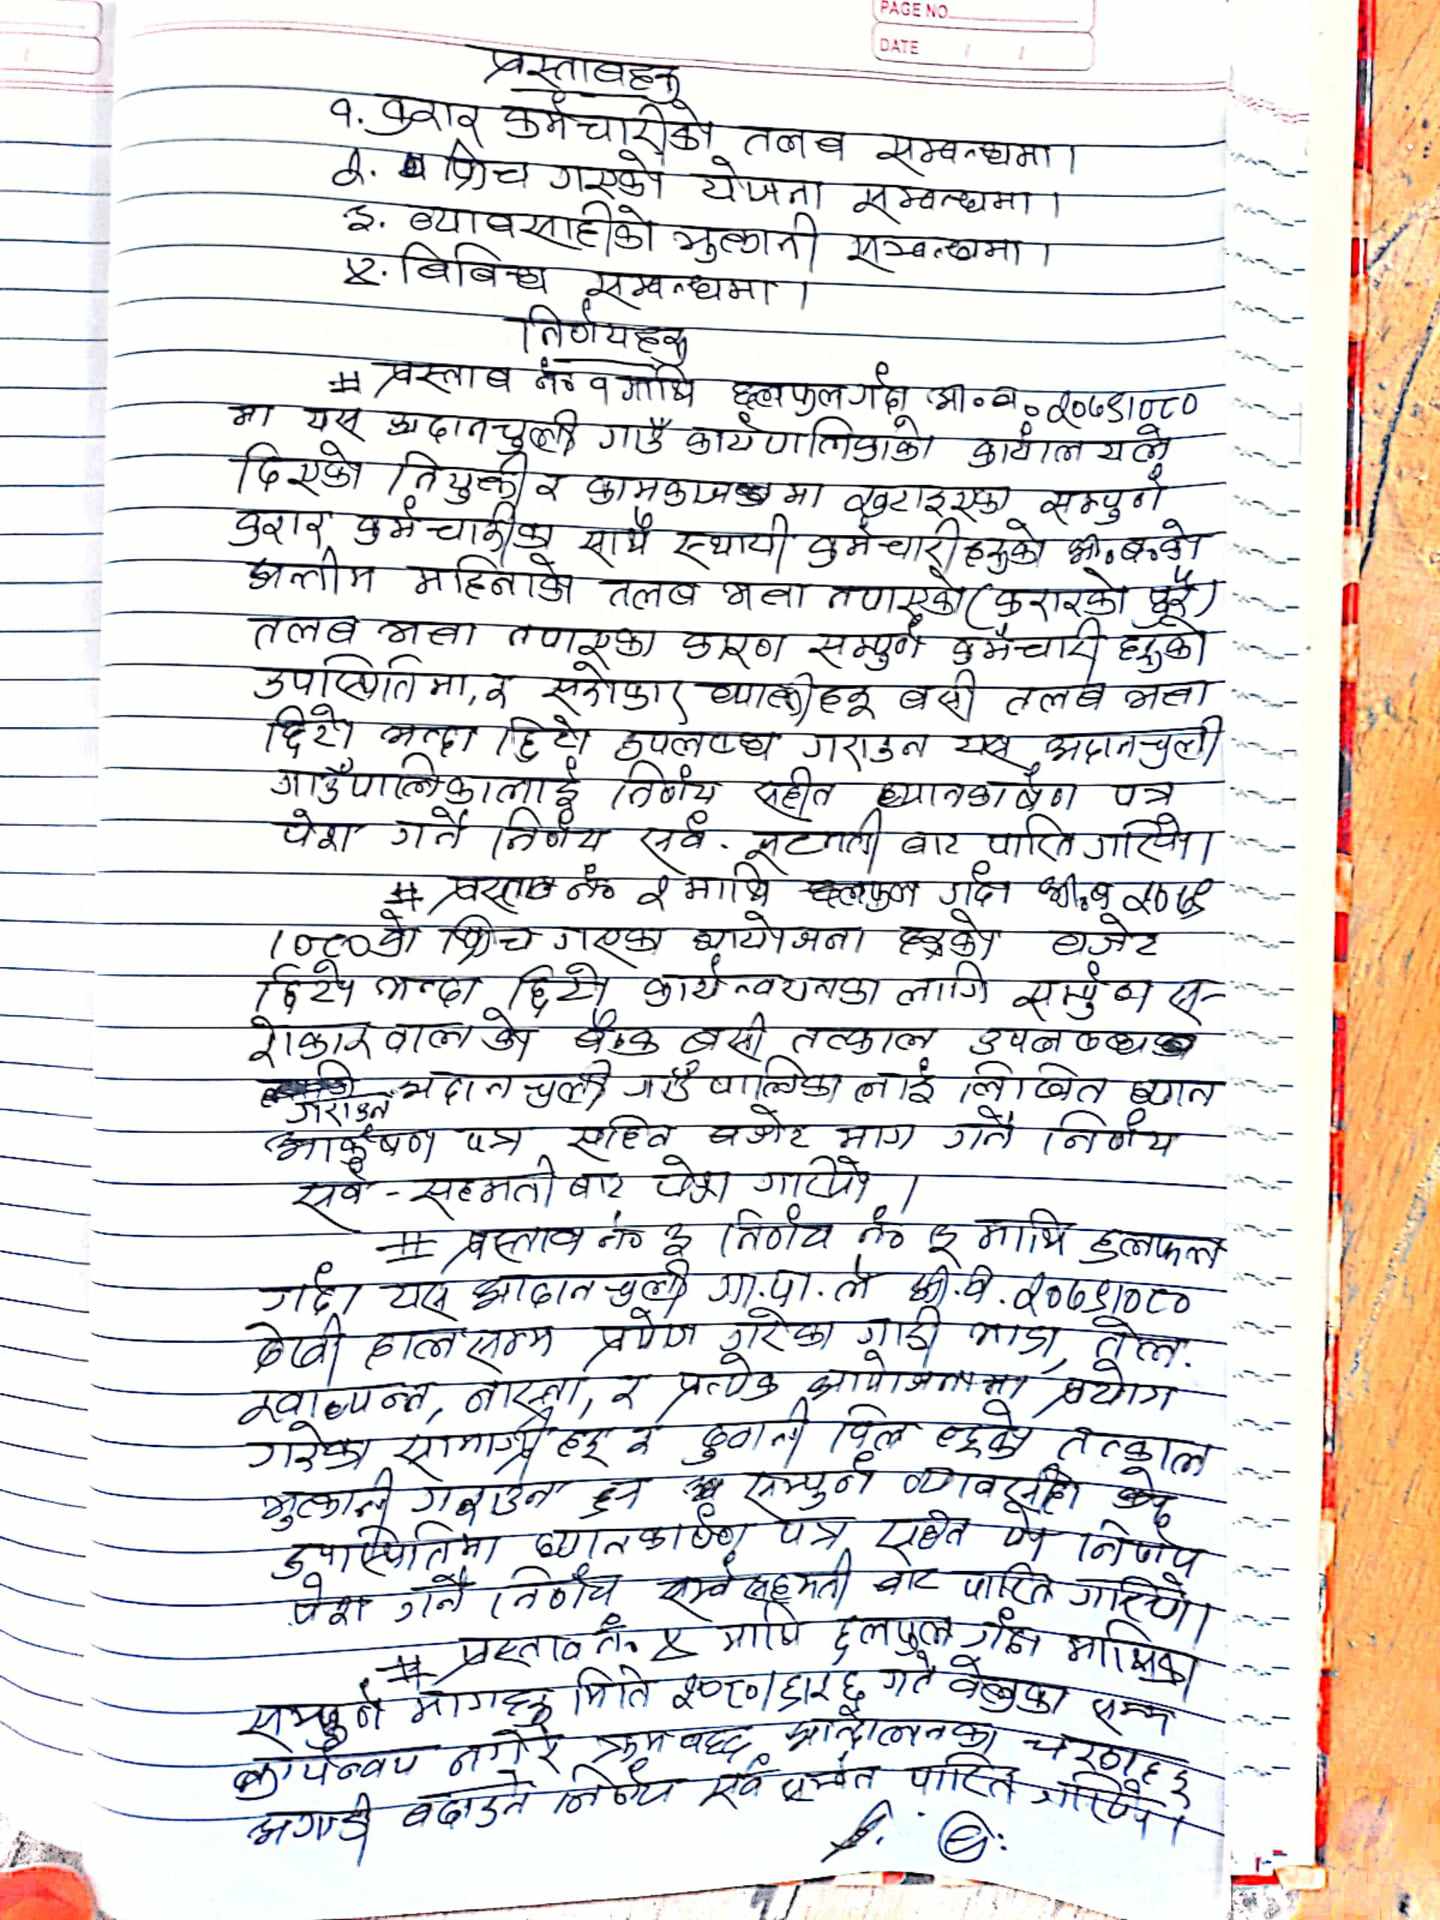 PAGE NO.
DATE / /
प्रस्तावहरु
१. करार कर्मचारीको तलब सम्बन्धमा।
२. फ्रिच गएको योजना सम्बन्धमा।
३. ब्यावसाहीको भुत्कानी सम्बन्धमा।
४. बिबिध सम्बन्धमा।
निर्णयहरु
# प्रस्ताब नं० १ माथि छलफुल गर्दा आ.ब. २०७९।०८०
मा यस अदानचुली गाउँ कार्यपालिकाको कार्यालयले
दिएको नियुक्ती र कामकाजमा खटाइएका सम्पुर्ण
करार कर्मचारीका साथै स्थायी कर्मचारीहरुको आ.ब.को
अन्तीम महिनाको तलब भत्ता नपाएको (करारको पुरै)
तलब भत्ता नपाएका कारण सम्पुर्ण कर्मचारी हरुको
उपस्थितिमा, र सरोकार ब्याक्तीहरु बसी तलब भत्ता
छिटो भन्दा छिटो उपलब्ध गराउन यस अदानचुली
गाउँपालिकालाई निर्णय सहीत ध्यानकार्षण पत्र
पेश गर्ने निर्णय सर्व. सहमती बाट पारित गरियो।
# प्रस्ताब नं० २ माथि छलफुल गर्दा आ.ब २०७९
।०८०को फ्रिच गएका आयोजना हरुको बजेट
छिटो भन्दा छिटो कार्यन्वयनका लागि सम्पुर्ण स-
रोकारवालाको बैठक बसी तत्काल उपलब्ध
गराउन अदानचुली गाउँपालिका लाई लिखित ध्यान
आर्कषण पत्र सहित बजेट माग गर्ने निर्णय
सर्व-सहमती बाट पेश गरियो।
# प्रस्ताव नं० ३ निर्णय नं० ३ माथि छलफल
गर्दा यस अदानचुली गा.पा.ले आ.ब. २०७९।०८०
देखी हालसम्म प्रयोग गरेका गाडी भाडा, तेल.
खाद्यन्न, नास्ता, र प्रत्येक आयोजनामा प्रयोग
गरेका सामाग्री हरु र ढुवानी विल हरुको तत्काल
भुत्कानी गराउन सम्पुर्ण ब्यावसाही
उपस्थितिमा ध्यानकार्षण पत्र सहित निर्णय
पेश गर्ने निर्णय सर्वसहमती बाट पारित गरियो।
# प्रस्ताव नं. ४ माथि छलफुल गर्दा माथिका
सम्पुर्ण मागहरु मिति २०८०। गते सम्म
कार्यन्वय नगरे क्रमबद्ध आन्दोलनका चरणहरु
अगाडी बढाउने निर्णय सर्व सम्मत पारित गरियो।